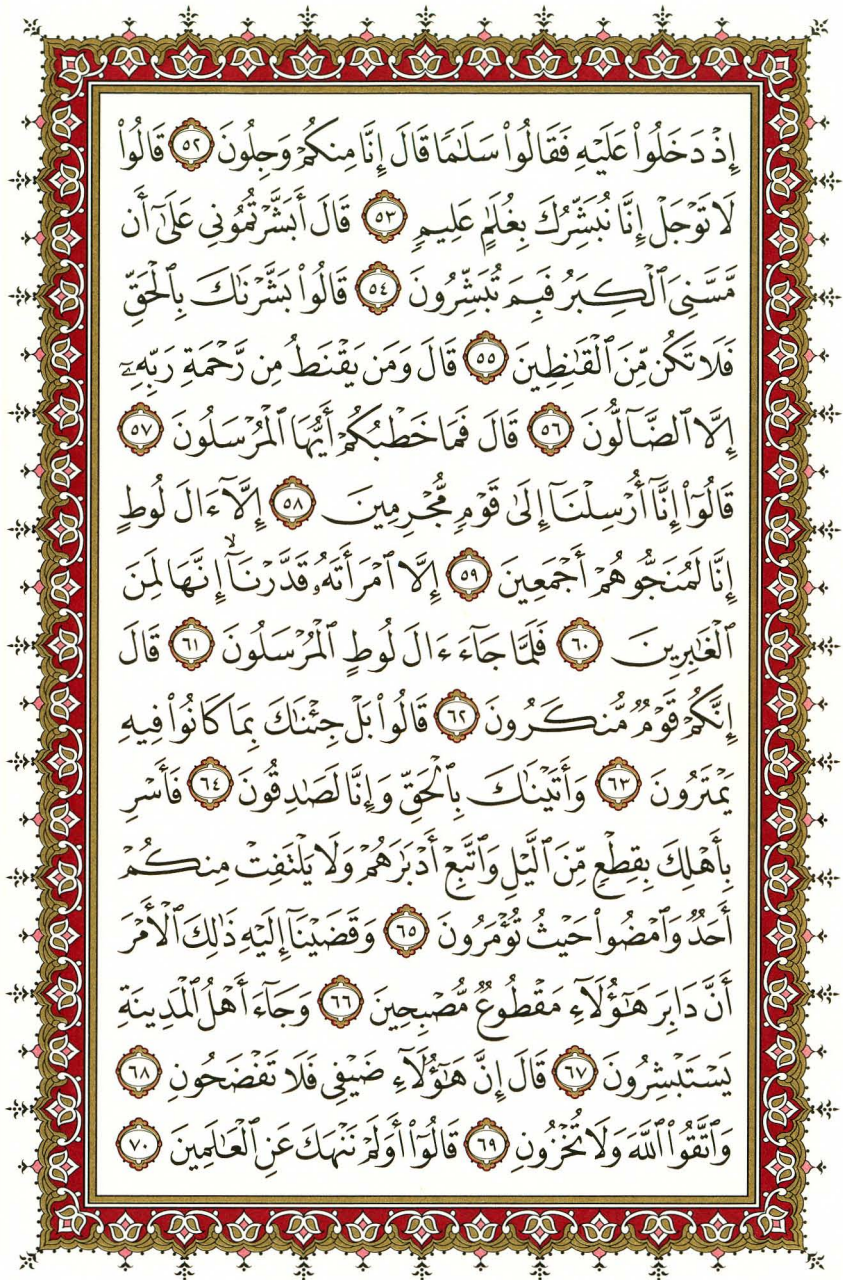 إِذْ دَخَلُوا۟ عَلَيْهِ فَقَالُوا۟ سَلَٰمًا قَالَ إِنَّا مِنكُمْ وَجِلُونَ ٥٢ قَالُوا۟
لَا تَوْجَلْ إِنَّا نُبَشِّرُكَ بِغُلَٰمٍ عَلِيمٍ ٥٣ قَالَ أَبَشَّرْتُمُونِى عَلَىٰٓ أَن
مَّسَّنِىَ ٱلْكِبَرُ فَبِمَ تُبَشِّرُونَ ٥٤ قَالُوا۟ بَشَّرْنَٰكَ بِٱلْحَقِّ
فَلَا تَكُن مِّنَ ٱلْقَٰنِطِينَ ٥٥ قَالَ وَمَن يَقْنَطُ مِن رَّحْمَةِ رَبِّهِۦٓ
إِلَّا ٱلضَّآلُّونَ ٥٦ قَالَ فَمَا خَطْبُكُمْ أَيُّهَا ٱلْمُرْسَلُونَ ٥٧
قَالُوٓا۟ إِنَّآ أُرْسِلْنَآ إِلَىٰ قَوْمٍ مُّجْرِمِينَ ٥٨ إِلَّآ ءَالَ لُوطٍ
إِنَّا لَمُنَجُّوهُمْ أَجْمَعِينَ ٥٩ إِلَّا ٱمْرَأَتَهُۥ قَدَّرْنَآ ۙ إِنَّهَا لَمِنَ
ٱلْغَٰبِرِينَ ٦٠ فَلَمَّا جَآءَ ءَالَ لُوطٍ ٱلْمُرْسَلُونَ ٦١ قَالَ
إِنَّكُمْ قَوْمٌ مُّنكَرُونَ ٦٢ قَالُوا۟ بَلْ جِئْنَٰكَ بِمَا كَانُوا۟ فِيهِ
يَمْتَرُونَ ٦٣ وَأَتَيْنَٰكَ بِٱلْحَقِّ وَإِنَّا لَصَٰدِقُونَ ٦٤ فَأَسْرِ
بِأَهْلِكَ بِقِطْعٍ مِّنَ ٱلَّيْلِ وَٱتَّبِعْ أَدْبَٰرَهُمْ وَلَا يَلْتَفِتْ مِنكُمْ
أَحَدٌ وَٱمْضُوا۟ حَيْثُ تُؤْمَرُونَ ٦٥ وَقَضَيْنَآ إِلَيْهِ ذَٰلِكَ ٱلْأَمْرَ
أَنَّ دَابِرَ هَٰٓؤُلَآءِ مَقْطُوعٌ مُّصْبِحِينَ ٦٦ وَجَآءَ أَهْلُ ٱلْمَدِينَةِ
يَسْتَبْشِرُونَ ٦٧ قَالَ إِنَّ هَٰٓؤُلَآءِ ضَيْفِى فَلَا تَفْضَحُونِ ٦٨
وَٱتَّقُوا۟ ٱللَّهَ وَلَا تُخْزُونِ ٦٩ قَالُوٓا۟ أَوَلَمْ نَنْهَكَ عَنِ ٱلْعَٰلَمِينَ ٧٠